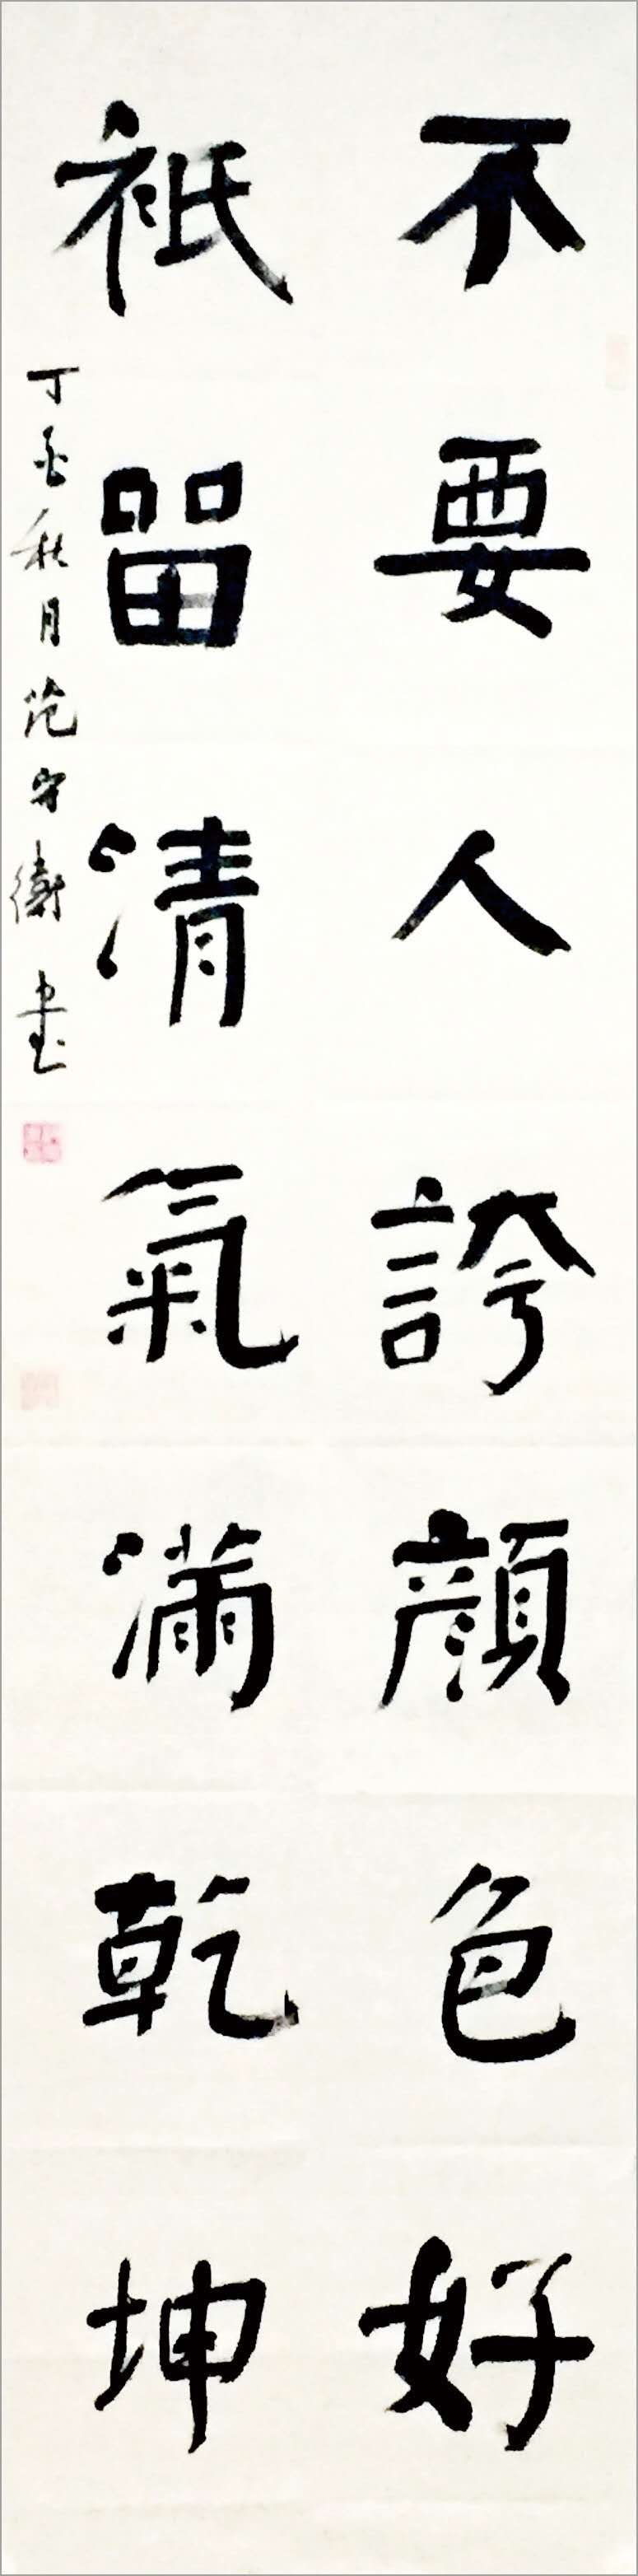 不要人誇顔色好
祗留清氣滿乾坤
丁酉秋月范守衛書